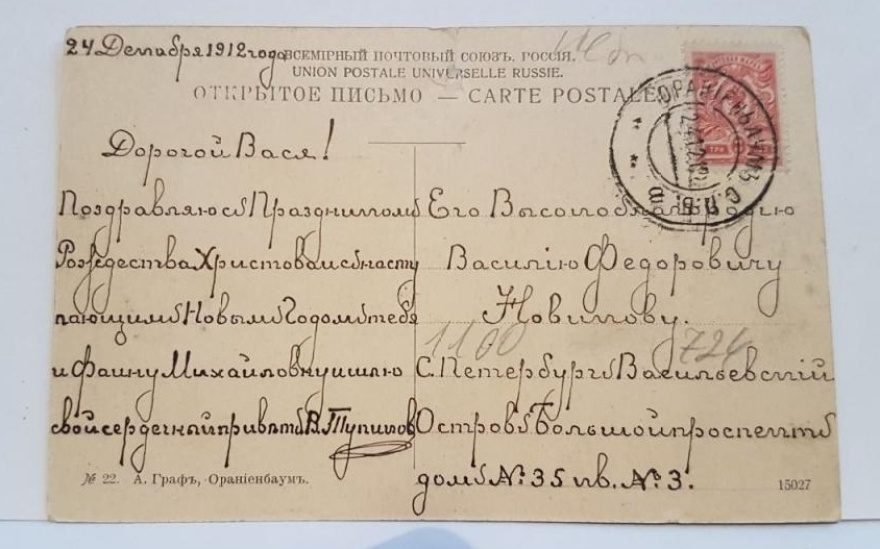 24 Декабря 1912 года
ВСЕМІРНЫЙ ПОЧТОВЫЙ СОЮЗЪ. РОССІЯ.
UNION POSTALE UNIVERSELLE RUSSIE.
ОТКРЫТОЕ ПИСЬМО — CARTE POSTALE
ОРАНІЕНБАУМЪ С.П.Б.
Дорогой Вася!
Поздравляю съ Праздникомъ
Рождества Христова и съ насту
пающимъ Новымъ Годомъ тебя
и Фаину Михайловну и шлю
свой сердечный привѣтъ В. Тупиловъ
Его Высокоблагородію
Василію Федоровичу
Новикову.
1100
724
С. Петербургъ Васильевскій
Островъ Большой проспектъ
домъ № 35 кв. № 3.
№ 22. А. Графъ, Ораніенбаумъ.
15027